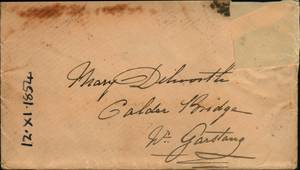 Mary Dilworth
Calder Bridge
Nr. Garstang
12·XI·1854